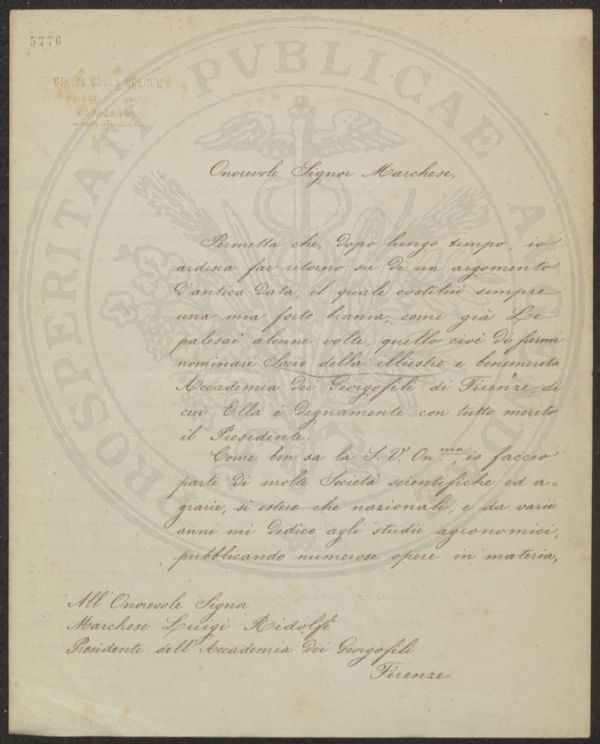 5776
PROSPERITATI PVBLICAE
Onorevole Signor Marchese,
Permetta che, dopo lungo tempo, io
ardisca far ritorno su di un argomento
d'antica data, il quale costituì sempre
una mia forte brama, come già Le
palesai alcune volte, quello cioè di farmi
nominare Socio della illustre e benemerita
Accademia dei Georgofili di Firenze, di
cui Ella è degnamente con tutto merito
il Presidente.
Come ben sa la S. V. On.ma, io faccio
parte di molte Società scientifiche ed a=
grarie, sì estere che nazionali, e da varii
anni mi dedico agli studii agronomici,
pubblicando numerose opere in materia,
All'Onorevole Signor
Marchese Luigi Ridolfi
Presidente dell'Accademia dei Georgofili
Firenze